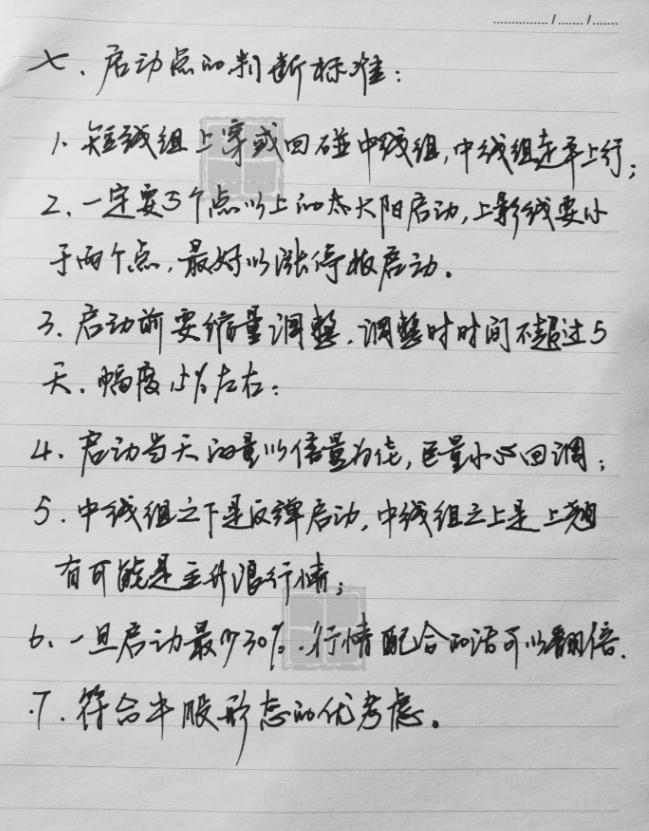 七、启动点的判断标准：
1、短线组上穿或回碰中线组，中线组走平上行；
2、一定要5个点以上的大阳启动，上影线要小
于两个点，最好以涨停板启动。
3、启动前要缩量调整，调整时时间不超过5
天，幅度15%左右；
4、启动当天的量以倍量为佳，巨量小心回调；
5、中线组之下是反弹启动，中线组之上是上翘
有可能是主升浪行情；
6、一旦启动最少30%，行情配合的话可以翻倍.
7、符合牛股形态的优考虑。